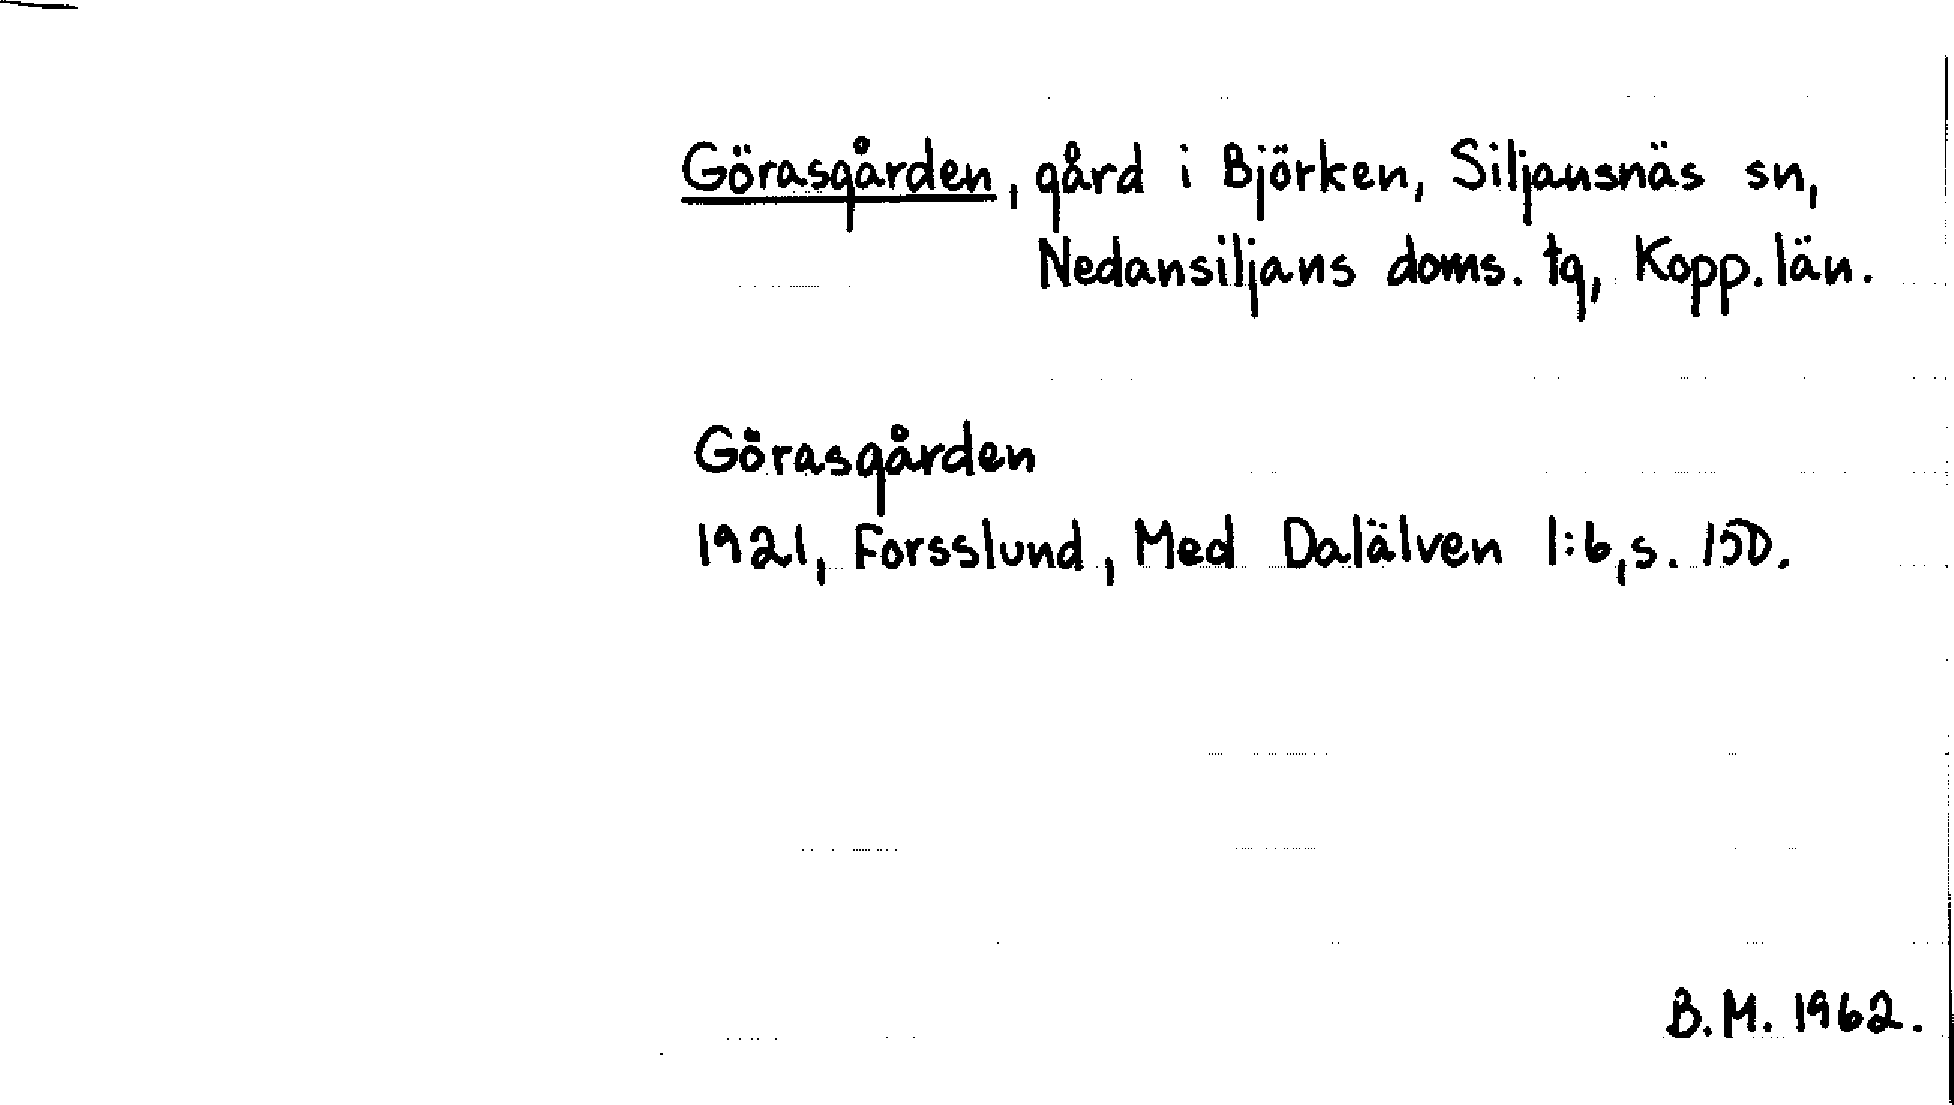 Görasgården, gård i Björken, Siljansnäs sn,
Nedansiljans doms. tg, Kopp. län.
Görasgården
1921, Forsslund, Med Dalälven 1:6, s. 150.
B.M. 1962.